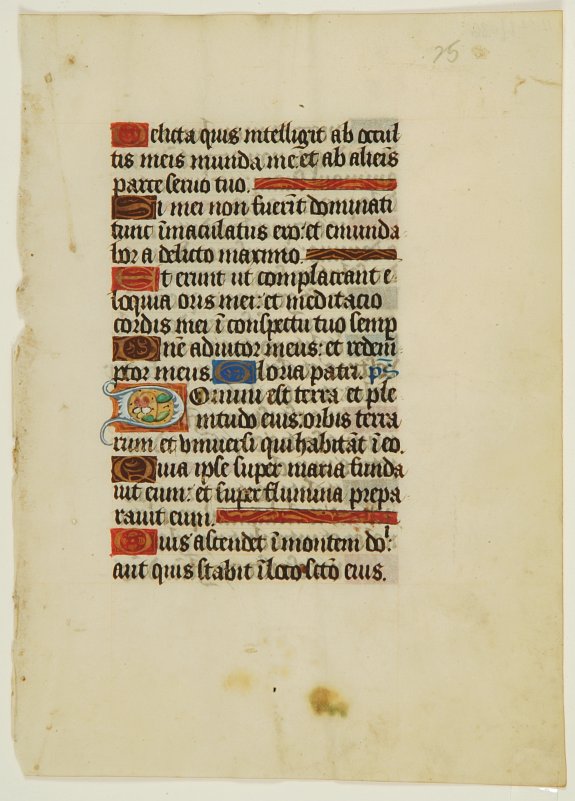 25
Delicta quis intelligit ab occul
tis meis munda me: et ab alieis
parce seruo tuo.
Si mei non fuerit dominati
tunc imaculatus ero: et emunda
bor a delicto maximo.
Et erunt ut complaceant e
loquia oris mei: et meditacio
cordis mei i conspectu tuo semp
Dne adiutor meus: et redem
ptor meus. Gloria patri. ps
Domini est terra et ple
nitudo eius: orbis terra
rum et vniuersi qui habitāt i eo.
Quia ipse super maria funda
uit eum: et super flumina prepa
rauit eum.
Quis ascendet i montem do͛:
aut quis stabit i loco sctō eius.